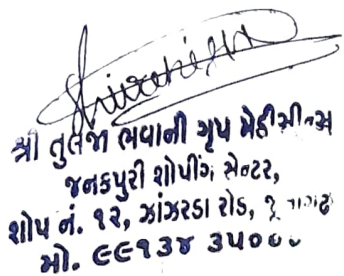 શ્રી તુલજા ભવાની ગૃપ મેડીસીન્સ
જનકપુરી શોપીંગ સેન્ટર,
શોપ નં. ૧૨, ઝાંઝરડા રોડ, જૂનાગઢ
મો. ૯૯૧૩૪ ૩૫૦૦૦